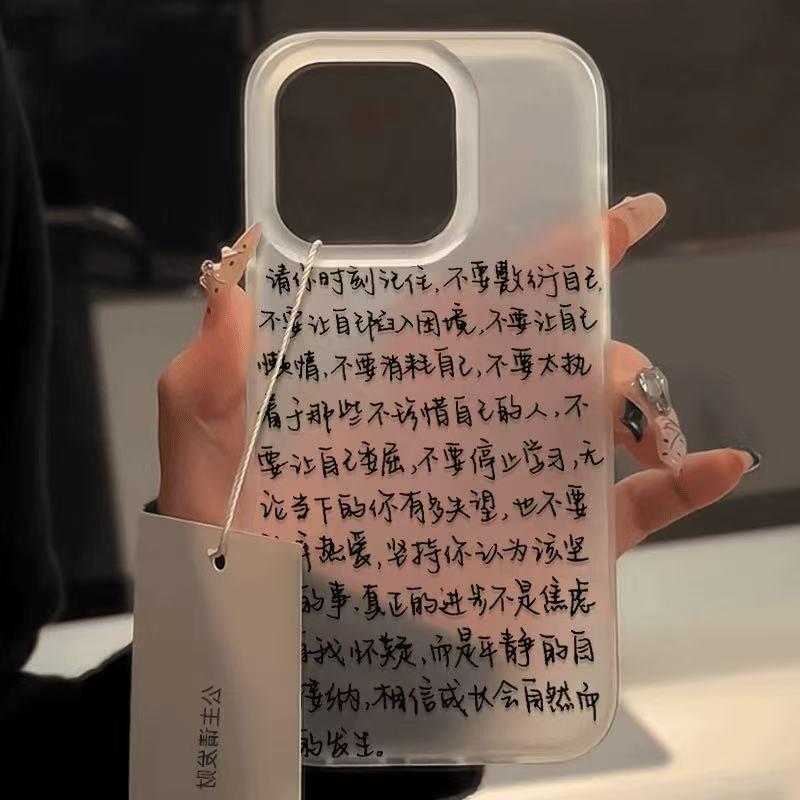 请你时刻记住,不要敷衍自己,
不要让自己陷入困境,不要让自己
懒惰,不要消耗自己,不要太执
着于那些不珍惜自己的人,不
要让自己委屈,不要停止学习,无
论当下的你有多失望,也不要
热爱,坚持你认为该坚
的事,真正的进步不是焦虑
自我怀疑,而是平静的自
接纳,相信成长会自然而
的发生。
公主请发财